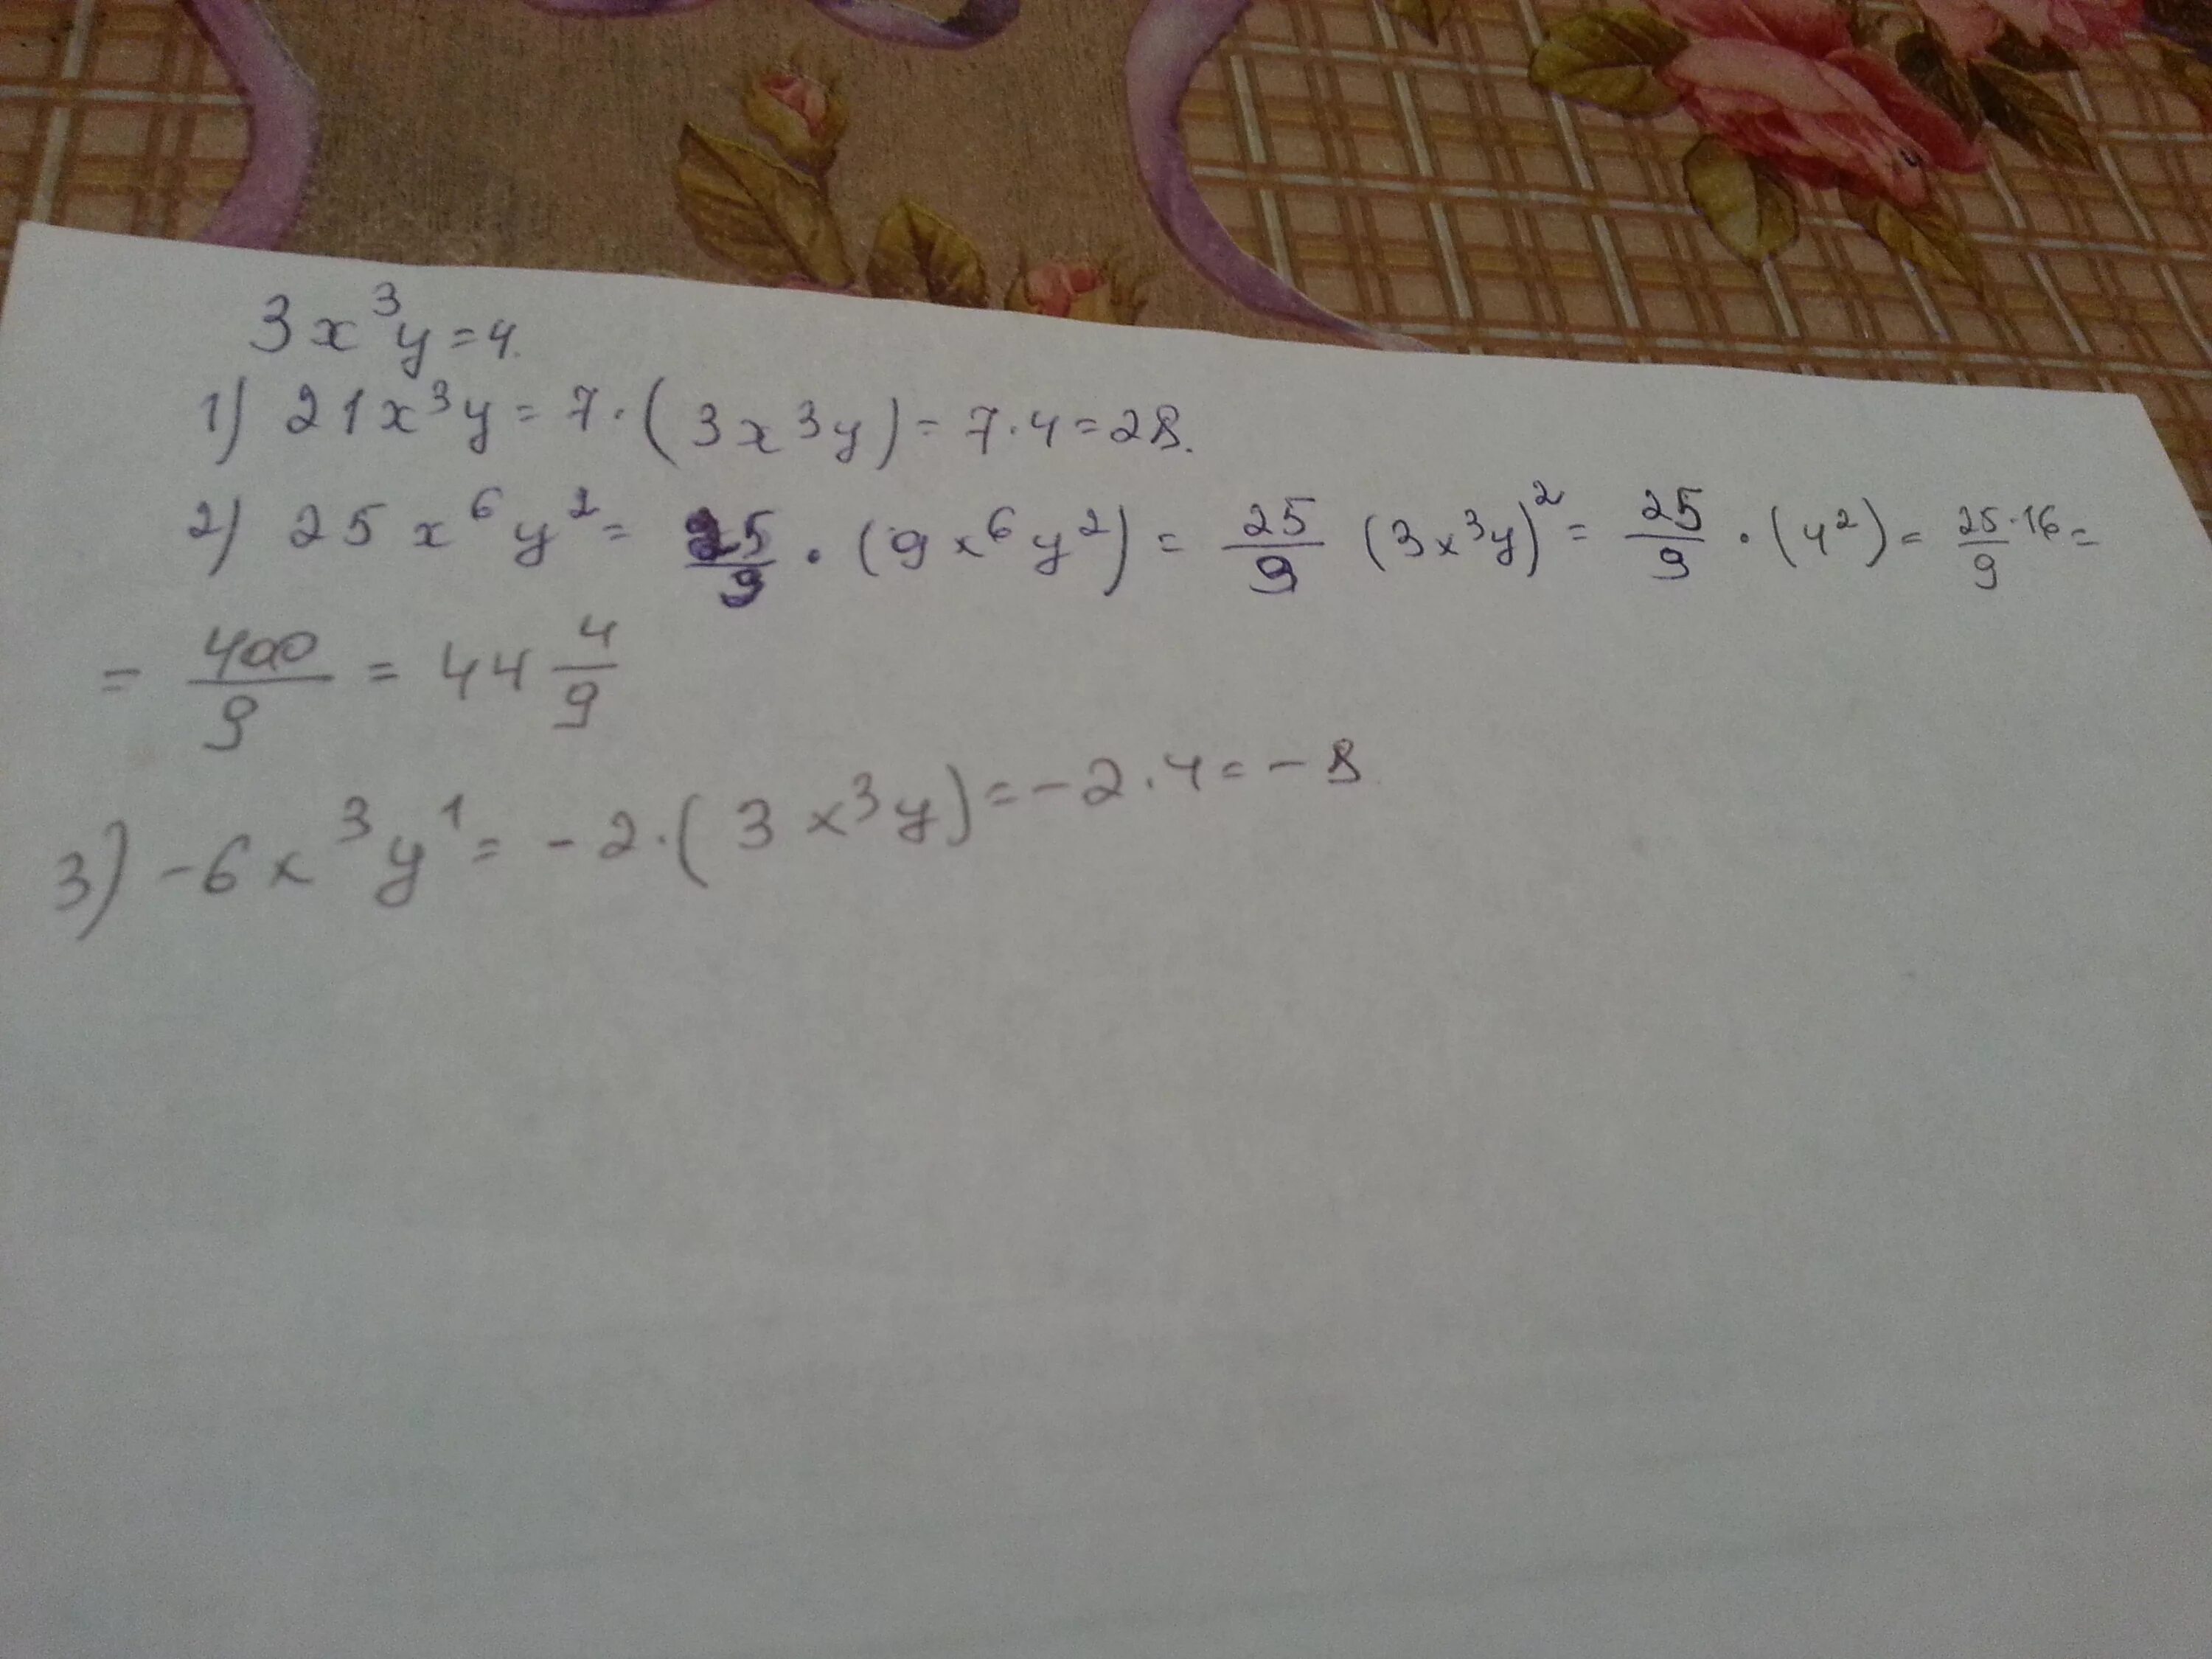 3x³y=4.
1) 21x³y=7·(3x³y)=7·4=28.
2) 25x⁶y²= 25/9 · (9x⁶y²) = 25/9 (3x³y)² = 25/9 · (4²) = 25·16/9 =
= 400/9 = 44 4/9
3) -6x³y¹= -2·(3x³y)=-2·4=-8